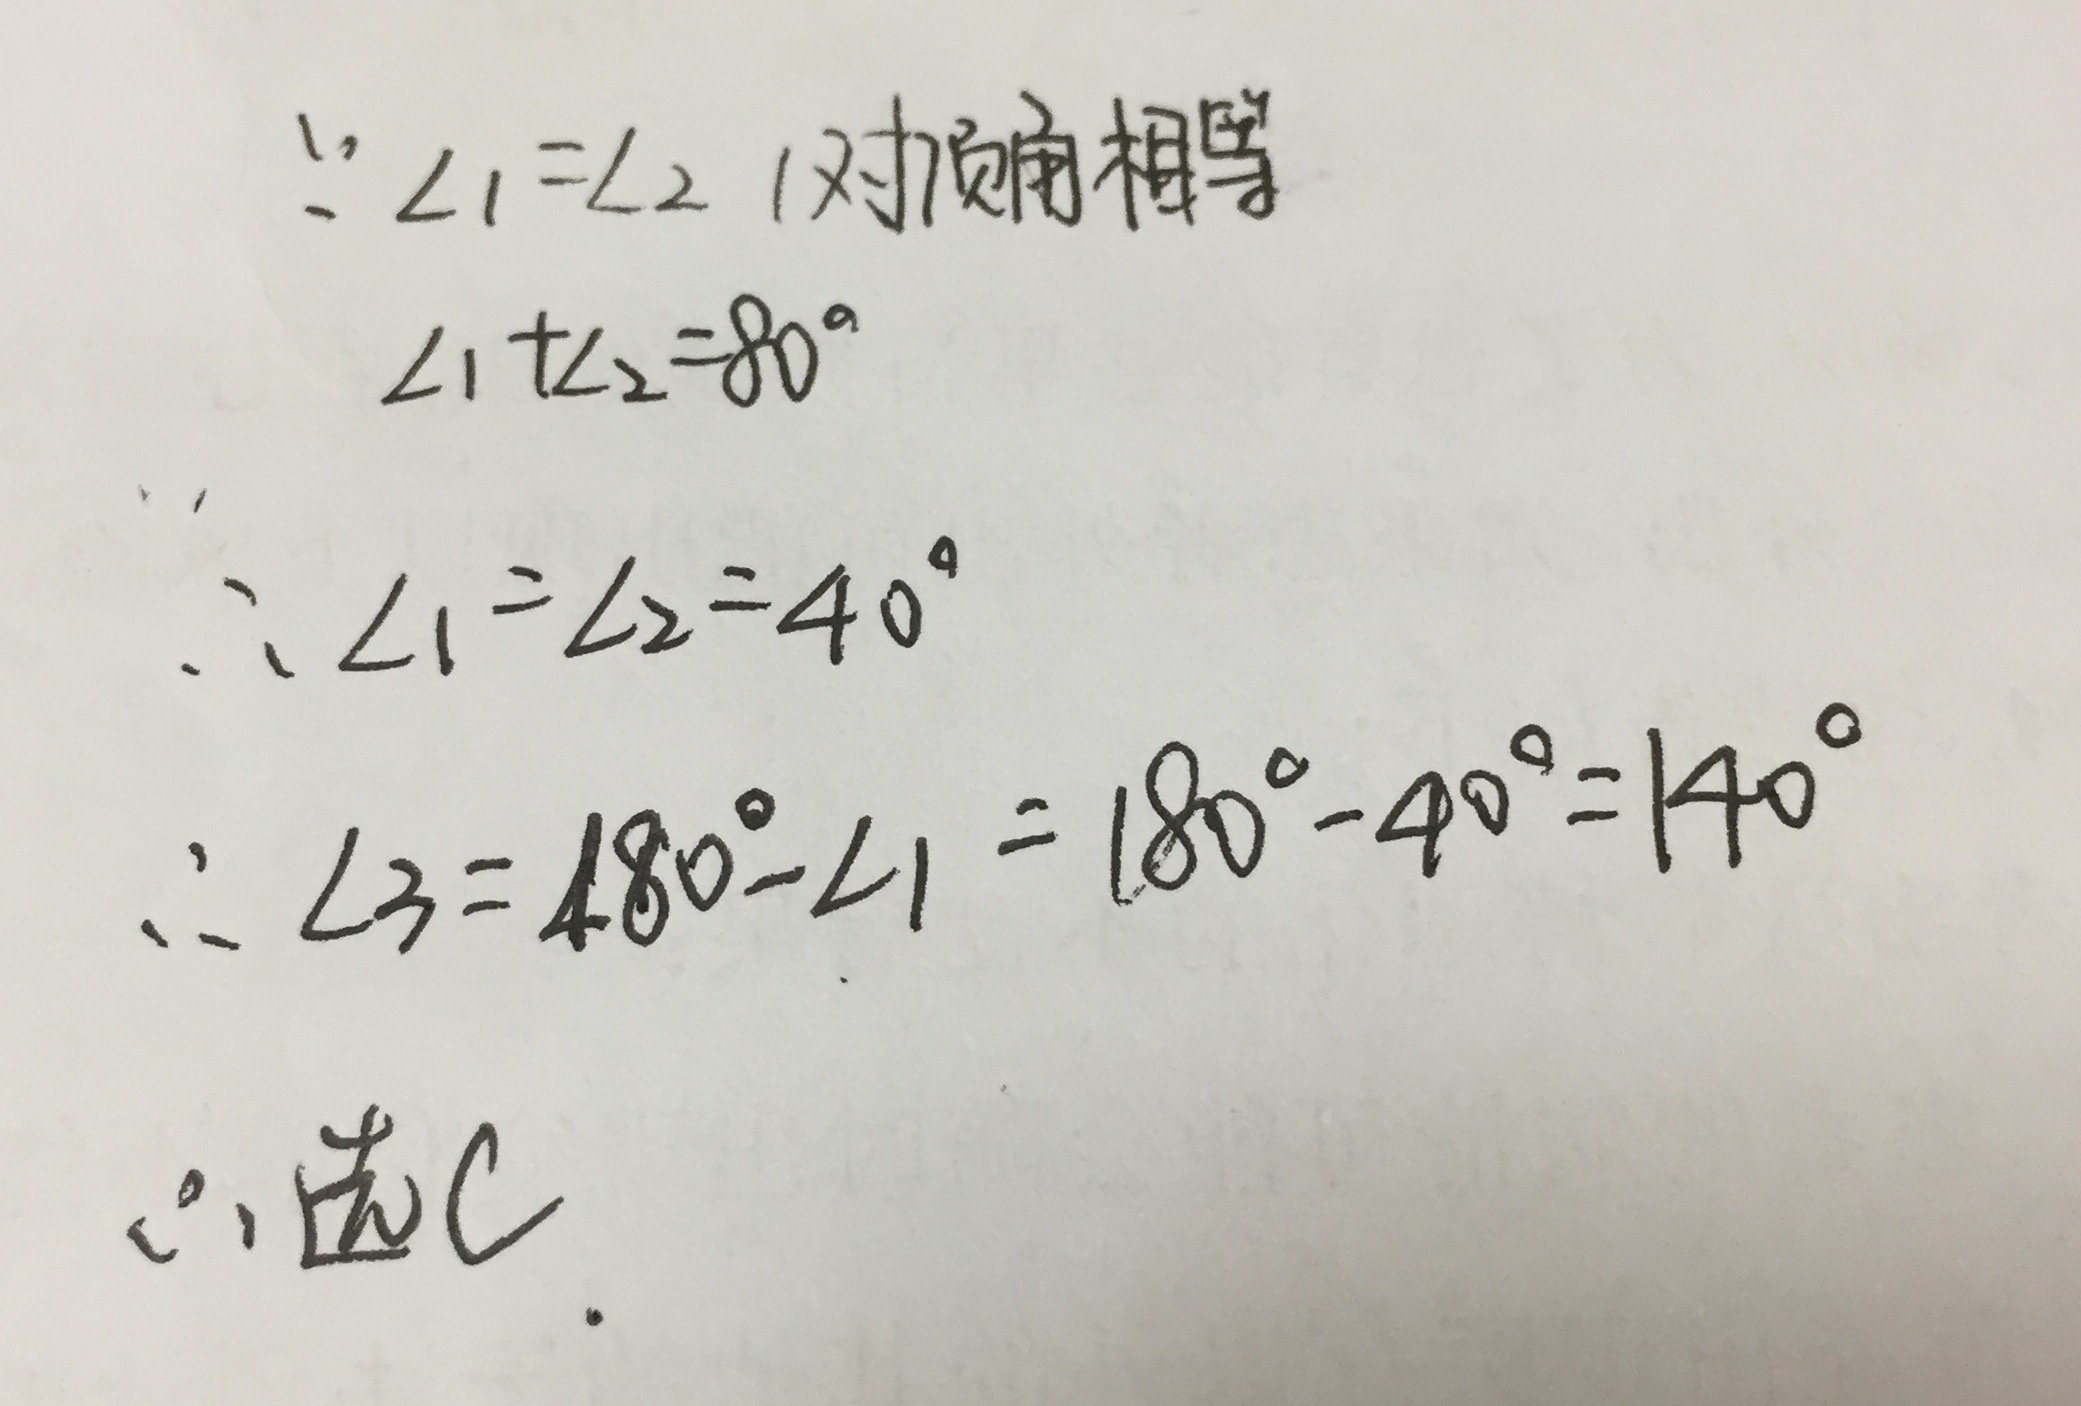 ∵ ∠1=∠2 (对顶角相等
∠1+∠2=80°
∴ ∠1=∠2=40°
∴ ∠3=180°-∠1=180°-40°=140°
∴ 选C.